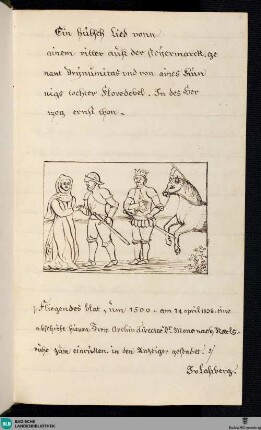 Ein hübsch Lied vonn
ainem ritter auß der steyermarck, ge
nant Trynumitas und von aines kün
nigs tochter Floredebel. In des Her
zog ernst thon.
Fliegendes blat, um 1500. am 24 april 1836. eine
abschrift hievon Herrn Archivdirector Dr. Mone nach Karls-
ruhe zum einrücken in den Anzeiger gesendet.
JvLaßberg.
BLB BADISCHE
LANDESBIBLIOTHEK